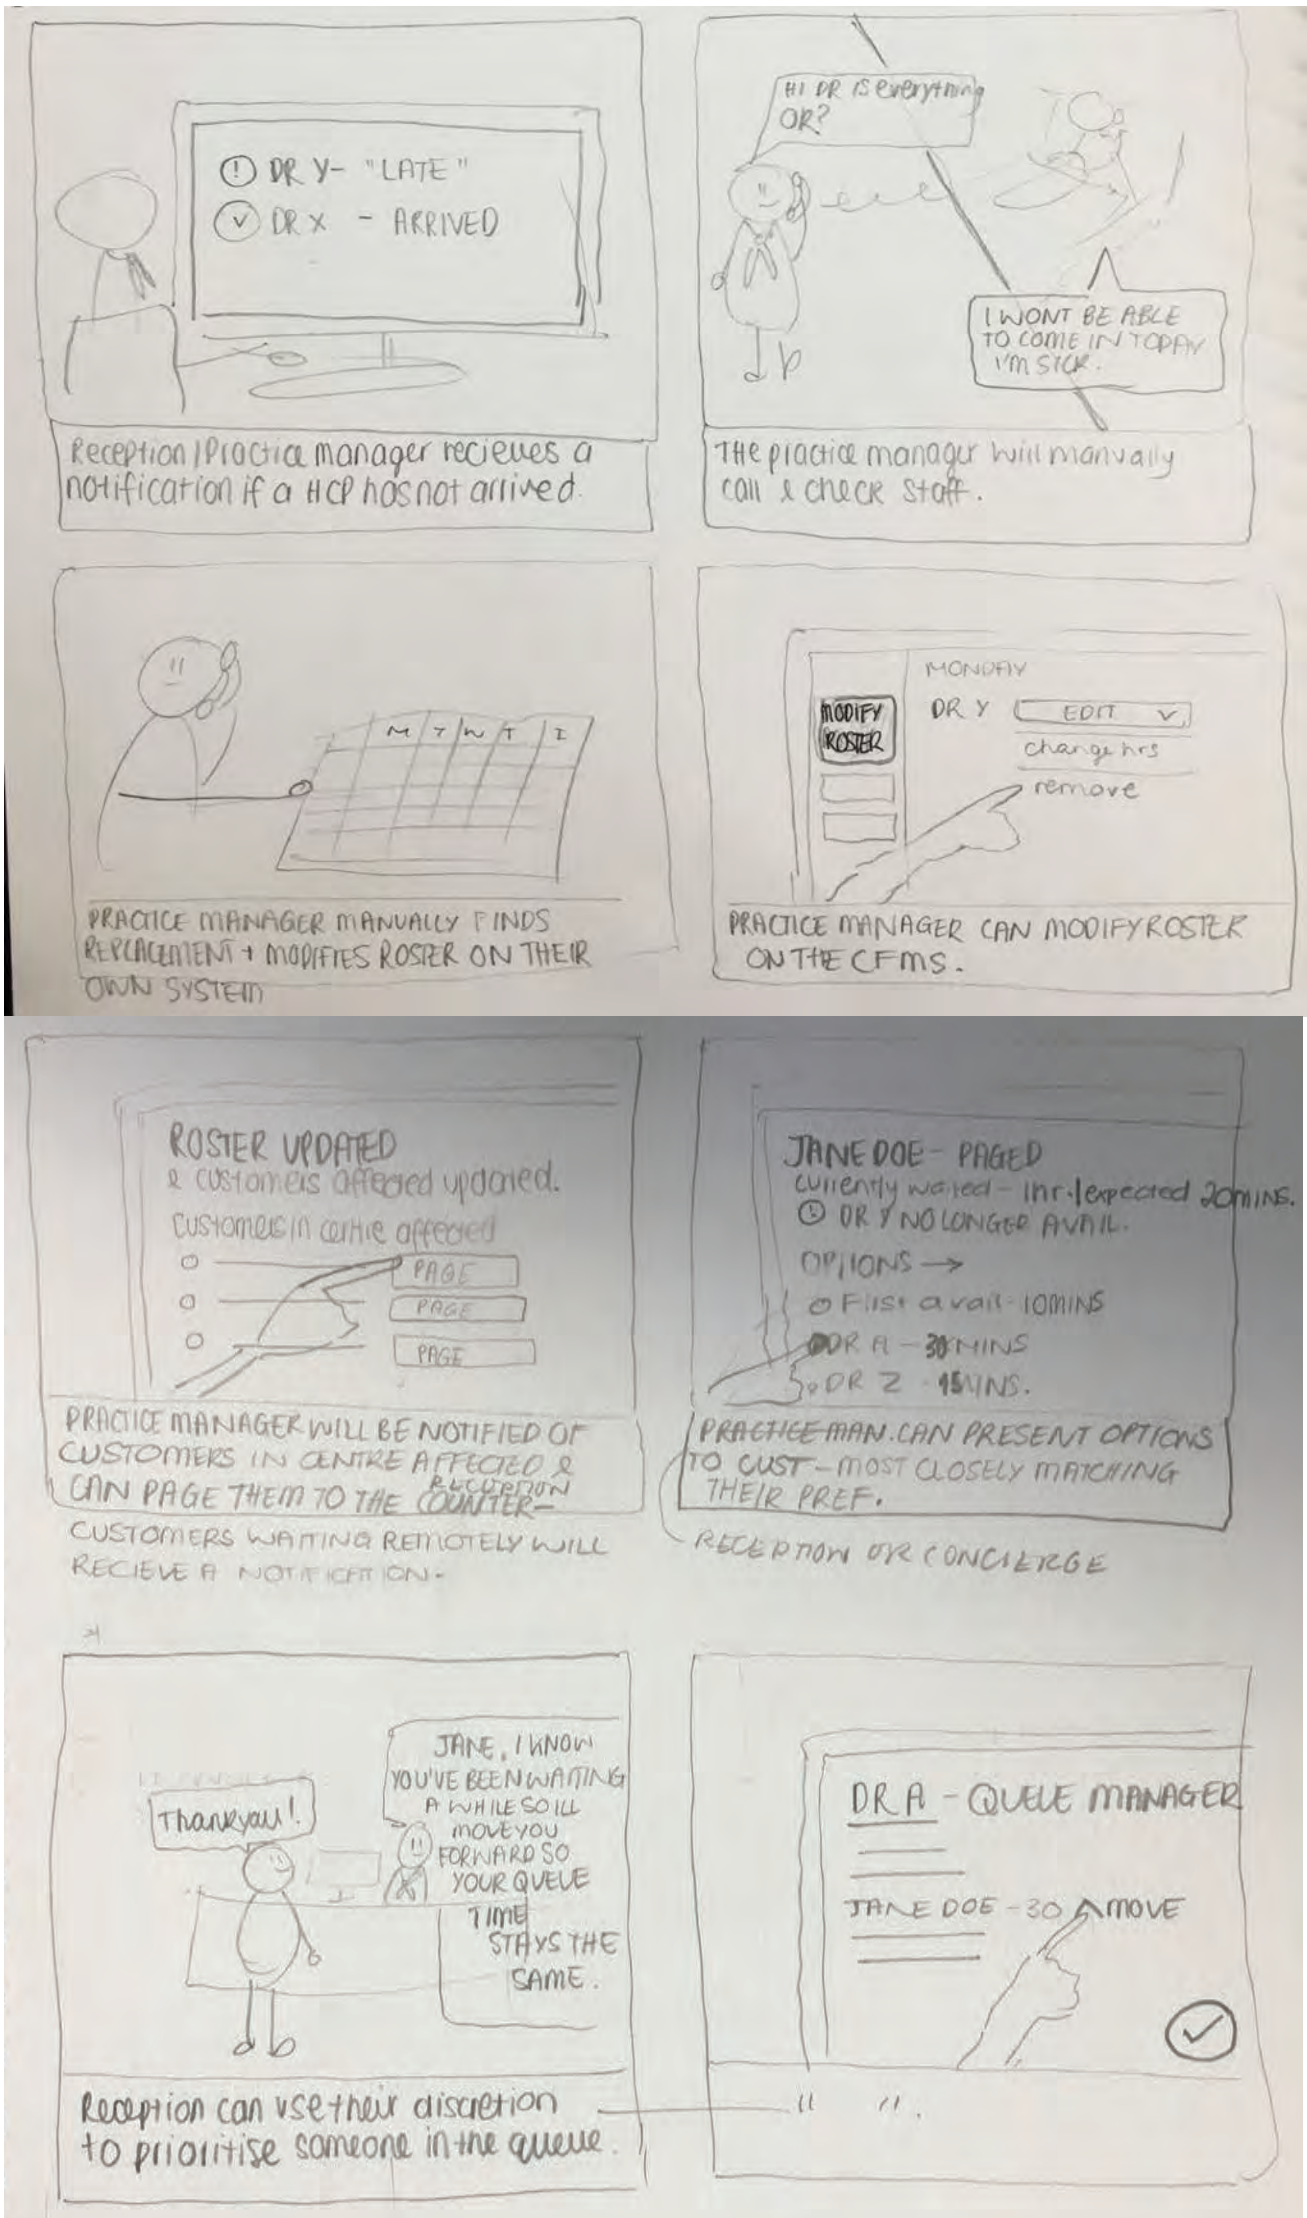 DR Y- "LATE"
DR X - ARRIVED
Reception / Practice manager recieves a
notification if a HCP has not arrived.
HI DR IS everything
OR?
I WONT BE ABLE
TO COME IN TODAY
I'M SICK.
THE practice manager will manually
call & check staff.
M T W T F
PRACTICE MANAGER MANUALLY FINDS
REPLACEMENT + MODIFIES ROSTER ON THEIR
OWN SYSTEM
MODIFY
ROSTER
MONDAY
DR Y EDIT
change hrs
remove
PRACTICE MANAGER CAN MODIFY ROSTER
ON THE CFMS.
ROSTER UPDATED
& customers affected updated.
Customers in centre affected
PAGE
PAGE
PAGE
PRACTICE MANAGER WILL BE NOTIFIED OF
CUSTOMERS IN CENTRE AFFECTED &
CAN PAGE THEM TO THE RECEPTION COUNTER-
CUSTOMERS WAITING REMOTELY WILL
RECIEVE A NOTIFICATION-
JANE DOE - PAGED
Currently waited - 1hr./expected 20MINS.
DR Y NO LONGER AVAIL.
OPTIONS →
First avail - 10MINS
DR A - 30 MINS
DR Z - 15MINS.
PRACTICE MAN. CAN PRESENT OPTIONS
TO CUST - MOST CLOSELY MATCHING
THEIR PREF.
RECEPTION OR CONCIERGE
Thankyou!
JANE, I KNOW
YOU'VE BEEN WAITING
A WHILE SO ILL
MOVE YOU
FORWARD SO
YOUR QUEUE
TIME
STAYS THE
SAME.
Reception can use their discretion
to prioritise someone in the queue.
DR A - QUEUE MANAGER
JANE DOE - 30 MOVE
" ".